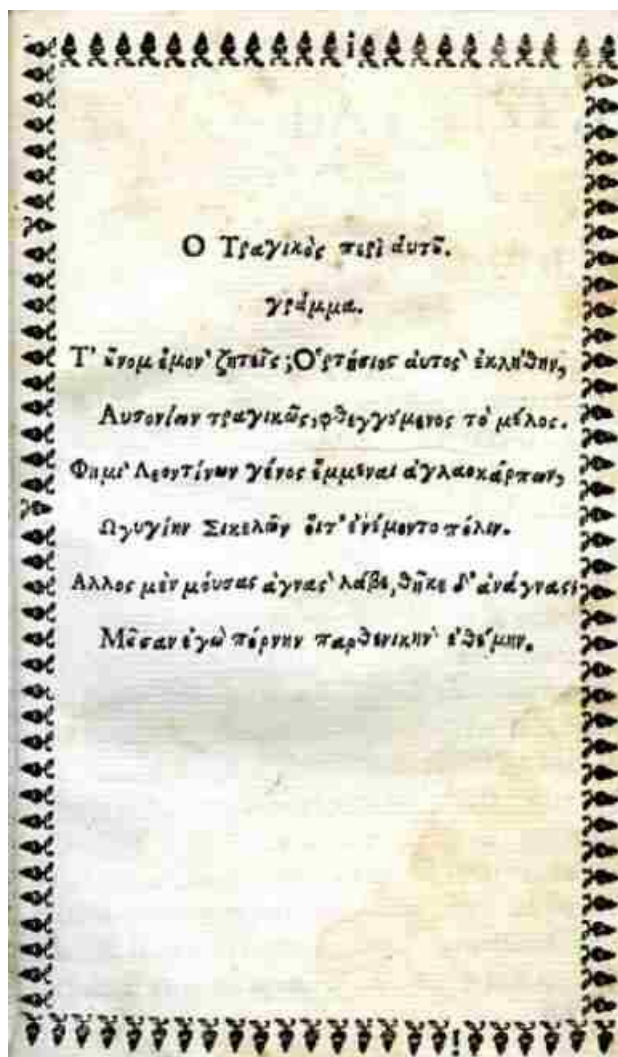 Ο Τραγικὸς περὶ ἀυτοῦ.
γράμμα.
Τ' ὄνομ ἐμον' ζητεῖς; Ο῾ρτήσιος ἀυτος' ἐκλήθην,
Αυσονίων τραγικῶς, φθεγγόμενος το' μέλος.
Φημι' Λεοντίνων γένος ἔμμεναι ἀγλαοκάρπων,
Ωγυγίην Σικελῶν ὅιτ' ἐνέμοντο πόλιν.
Αλλος μὲν μόυσας ἁγνας' λάβε, θῆκε δ' ἀνάγνας;
Μοῦσαν ἐγω' πόρνην παρθενικην' ἐθέμην.